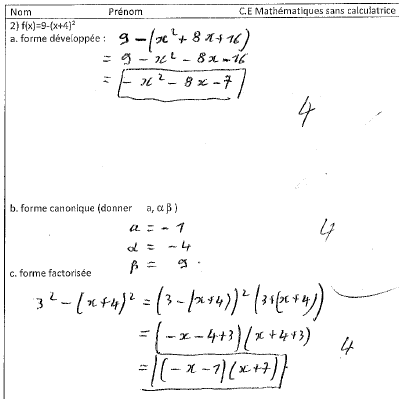 Nom Prénom C.E Mathématiques sans calculatrice
2) f(x)=9-(x+4)²
a. forme développée : 9 - (x² + 8x + 16)
= 9 - x² - 8x - 16
= - x² - 8x - 7
4
b. forme canonique (donner a, α β )
a = - 1
4
α = - 4
β = 9 .
c. forme factorisée
3² - (x+4)² = (3 - (x+4))² (3+(x+4))
= (-x-4+3)(x+4+3)
4
= (-x-1)(x+7)